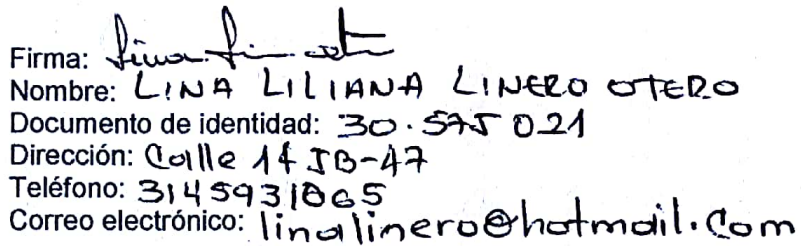 Firma:
Nombre: LINA LILIANA LINERO OTERO
Documento de identidad: 30.575021
Dirección: Calle 14 5B-47
Teléfono: 3145931865
Correo electrónico: linalinero@hotmail.com